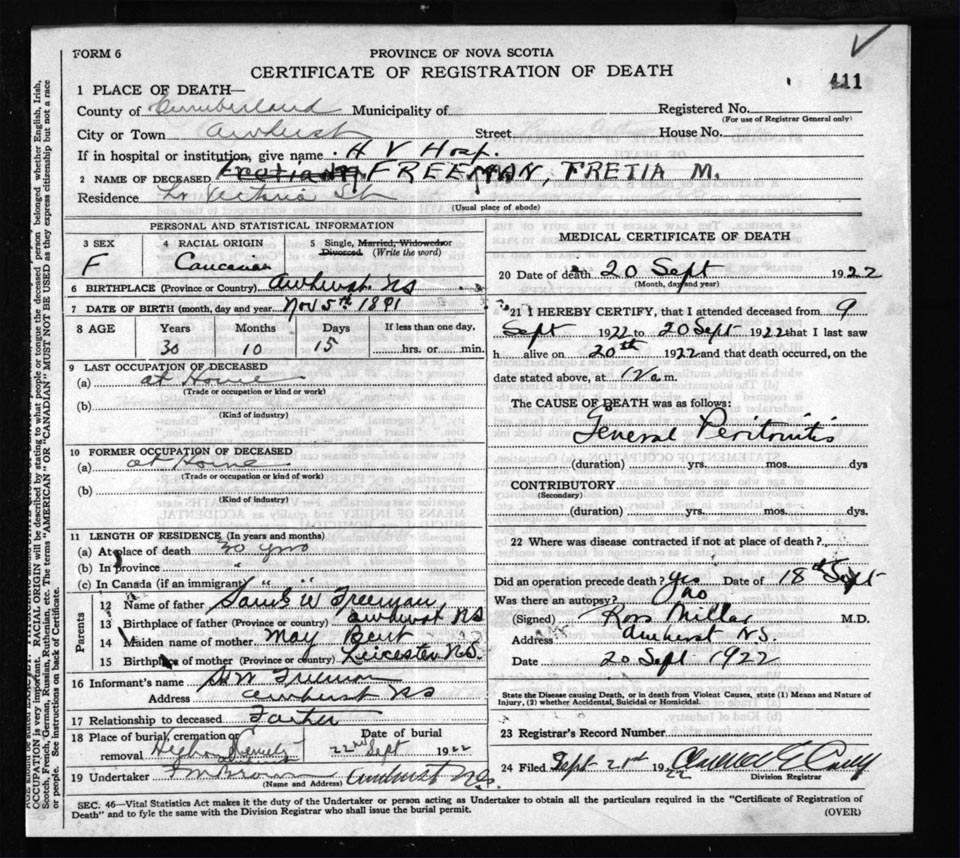 FORM 6
PROVINCE OF NOVA SCOTIA
CERTIFICATE OF REGISTRATION OF DEATH
411
1 PLACE OF DEATH—
County of Cumberland Municipality of
Registered No.
(For use of Registrar General only)
City or Town Amherst Street House No.
If in hospital or institution, give name H V Hosp.
2 NAME OF DECEASED FREEMAN, FRETIA M.
Residence Victoria St
(Usual place of abode)
PERSONAL AND STATISTICAL INFORMATION
3 SEX F
4 RACIAL ORIGIN Caucasian
5 Single, Married, Widowed or Divorced (Write the word)
6 BIRTHPLACE (Province or Country) Amherst NS
7 DATE OF BIRTH (month, day and year) Nov 5th 1891
8 AGE Years Months Days If less than one day,
30 10 15 hrs. or min.
9 LAST OCCUPATION OF DECEASED
(a) at Home
(Trade or occupation or kind or work)
(b)
(Kind of industry)
10 FORMER OCCUPATION OF DECEASED
(a) at Home
(Trade or occupation or kind of work)
(b)
(Kind of industry)
11 LENGTH OF RESIDENCE (In years and months)
(a) At place of death 30 yrs
(b) In province "
(c) In Canada (if an immigrant) " "
Parents
12 Name of father Saml W Freeman
13 Birthplace of father (Province or country) Amherst NS
14 Maiden name of mother May Bent
15 Birthplace of mother (Province or country) Leicester N.S.
16 Informant's name S W Freeman
Address Amherst NS
17 Relationship to deceased Father
18 Place of burial, cremation or removal
Date of burial
22nd Sept 1922
19 Undertaker Amherst N.S.
(Name and Address)
MEDICAL CERTIFICATE OF DEATH
20 Date of death 20 Sept 1922
(Month, day and year)
21 I HEREBY CERTIFY, that I attended deceased from 9
Sept 1922 to 20 Sept 1922 that I last saw
h alive on 20th 1922 and that death occurred, on the
date stated above, at 12 a m.
The CAUSE OF DEATH was as follows:
General Peritonitis
(duration) yrs. mos. dys
CONTRIBUTORY
(Secondary)
(duration) yrs. mos. dys.
22 Where was disease contracted if not at place of death?
Did an operation precede death? Yes Date of 18th Sept
Was there an autopsy? no
(Signed) Ross Millar M.D.
Address Amherst N.S.
Date 20 Sept 1922
State the Disease causing Death, or in death from Violent Causes, state (1) Means and Nature of
Injury, (2) whether Accidental, Suicidal or Homicidal.
23 Registrar's Record Number
24 Filed Sept 1922
Division Registrar
SEC. 46—Vital Statistics Act makes it the duty of the Undertaker or person acting as Undertaker to obtain all the particulars required in the "Certificate of Registration of
Death" and to fyle the same with the Division Registrar who shall issue the burial permit.
(OVER)
OCCUPATION is very important. RACIAL ORIGIN will be described by stating to what people or tongue the deceased person belonged whether English, Irish,
Scotch, French, German, Russian, Ruthenian, etc. The terms "AMERICAN" OR "CANADIAN" MUST NOT BE USED as they express citizenship but not a race
or people. See instructions on back of Certificate.